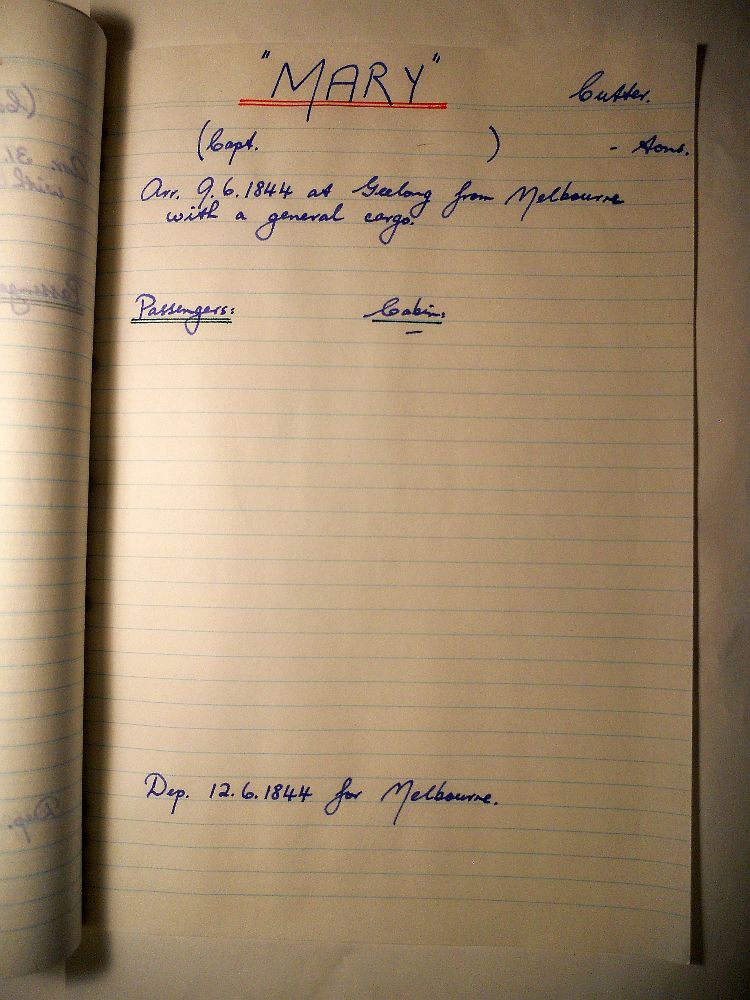 "MARY" Cutter.
(Capt. ) - tons.
Arr. 9.6.1844 at Geelong from Melbourne
with a general cargo.
Passengers: Cabin:
-
Dep. 12.6.1844 for Melbourne.